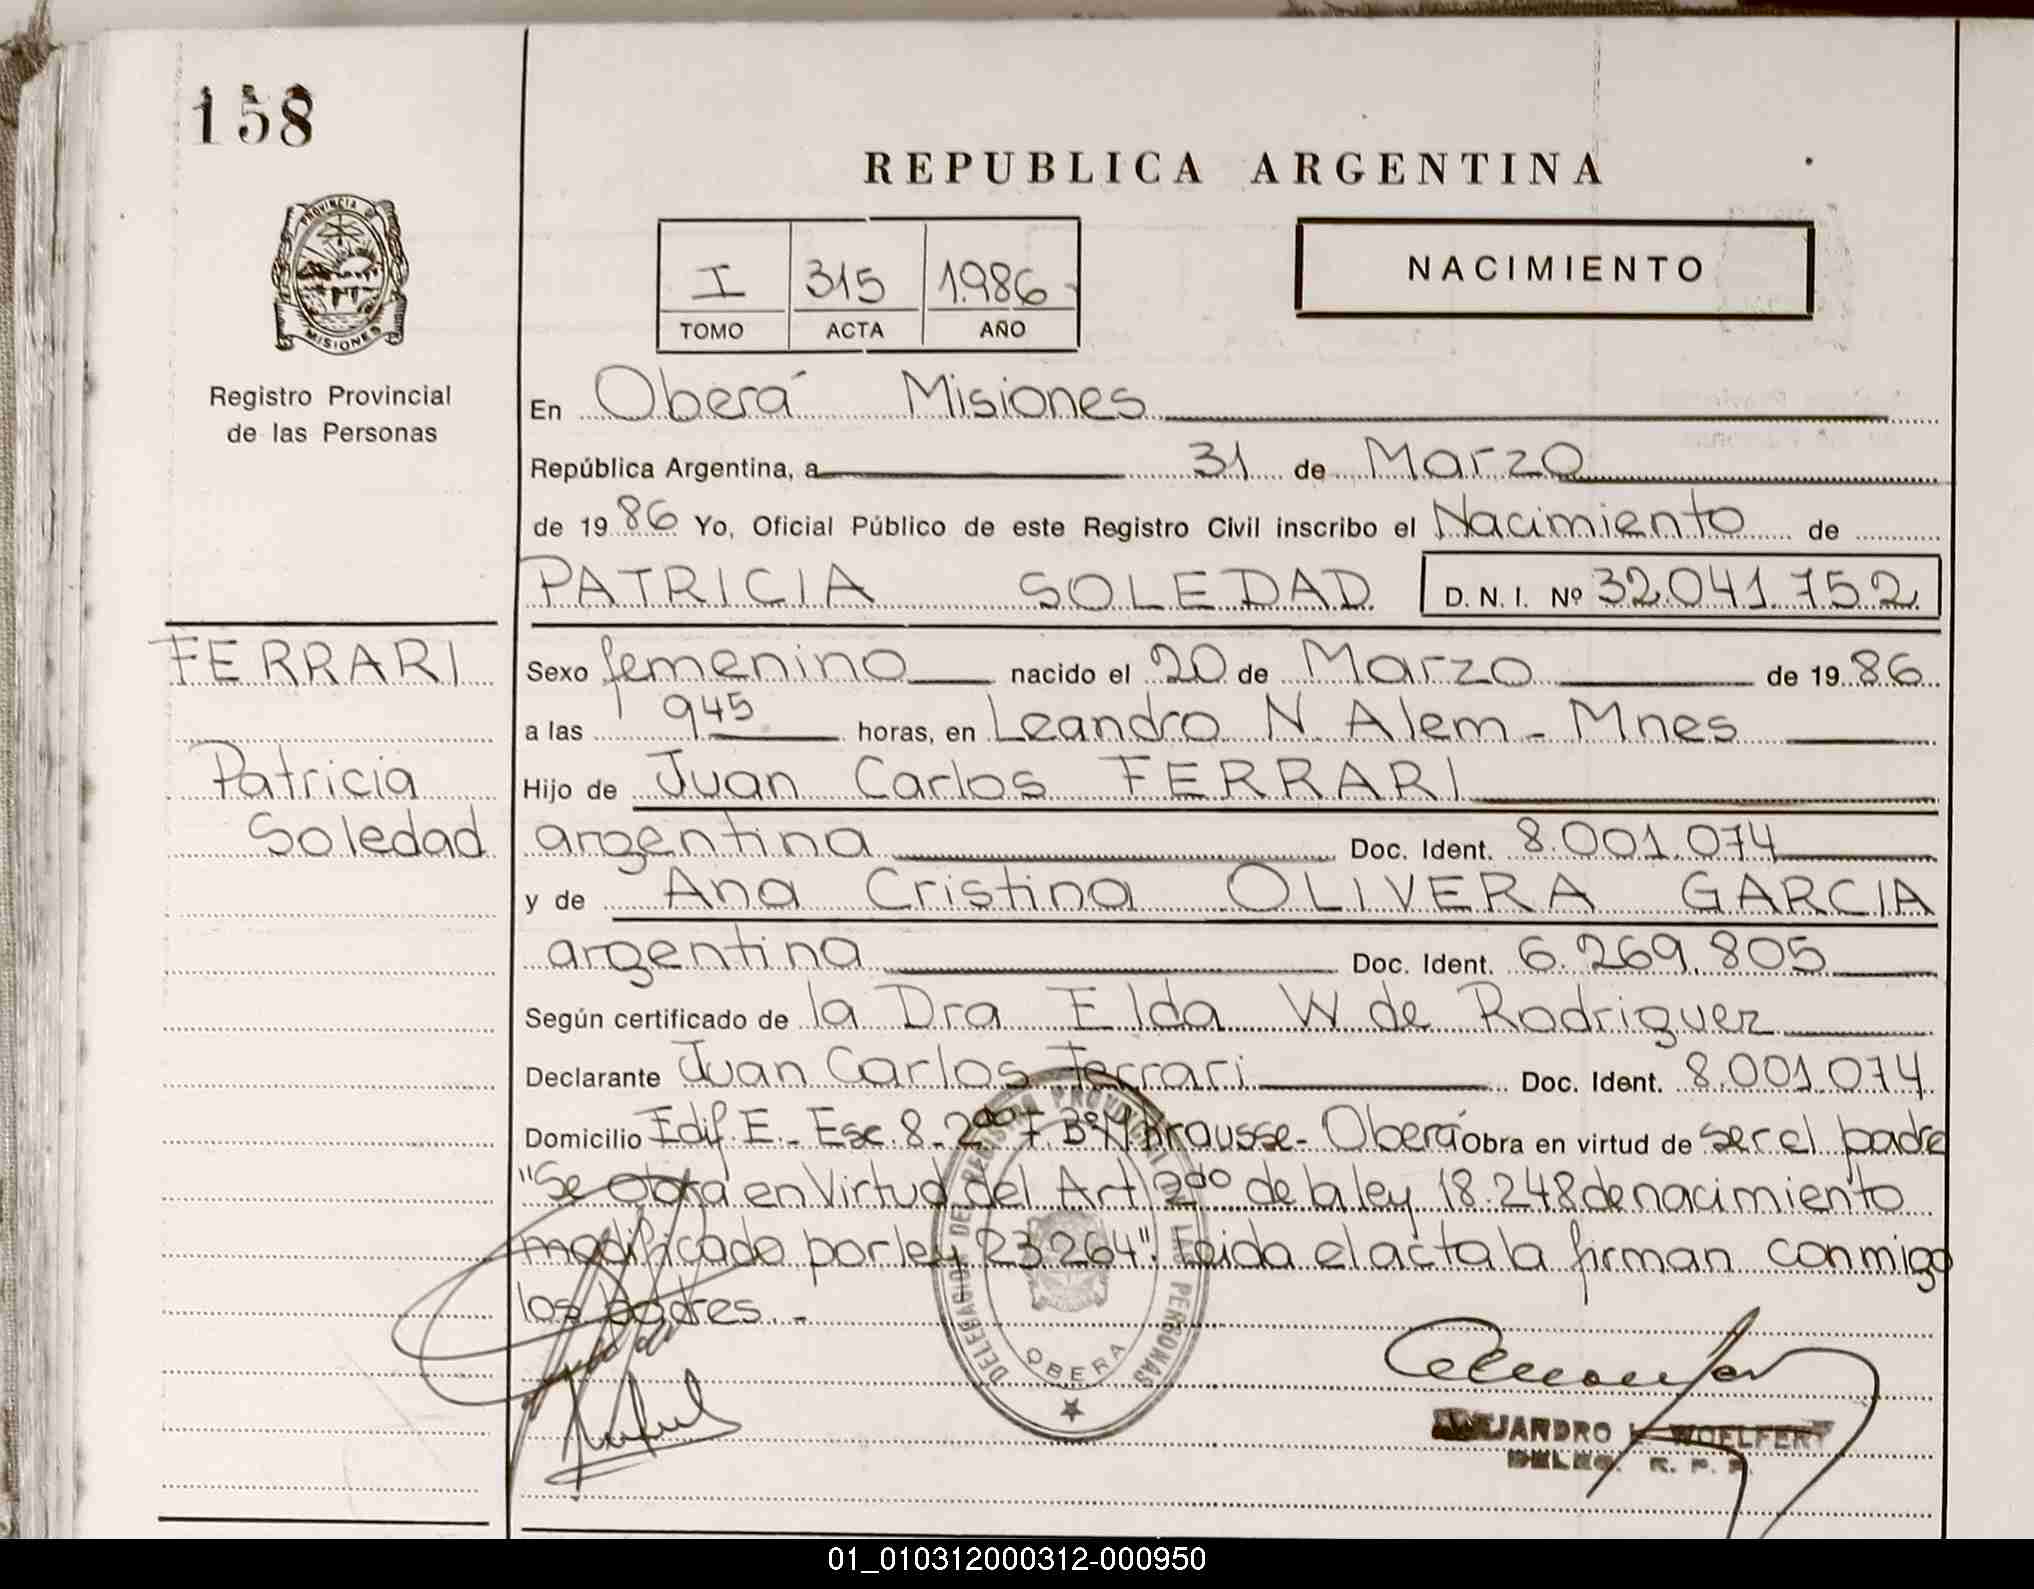 158
REPUBLICA ARGENTINA
PROVINCIA DE
MISIONES
I 315 1.986
TOMO ACTA AÑO
NACIMIENTO
Registro Provincial
de las Personas
En Oberá Misiones
República Argentina, a 31 de Marzo
de 19 86 Yo, Oficial Público de este Registro Civil inscribo el Nacimiento de
PATRICIA SOLEDAD D. N. I. Nº 32.041.752
FERRARI
Patricia
Soledad
Sexo femenino nacido el 20 de Marzo de 19 86
a las 9 45 horas, en Leandro N Alem - Mnes
Hijo de Juan Carlos FERRARI
argentina Doc. Ident. 8.001.074
y de Ana Cristina OLIVERA GARCIA
argentina Doc. Ident. 6.269.805
Según certificado de la Dra Elda W de Rodriguez
Declarante Juan Carlos Ferrari Doc. Ident. 8.001.074
Domicilio Edif. E.- Esc. 8- 2do F. Bº Krausse- Oberá obra en virtud de ser el padre
"Se obra en Virtud del Art 2do de la ley 18.248 de nacimiento
modificado por ley 23264". Leida el acta la firman conmigo
los padres.-
DELEGACION DEL REGISTRO PROVINCIAL DE LAS PERSONAS
OBERA
ALEJANDRO L. WOELFERT
DELEG. R. P. P.
01_010312000312-000950